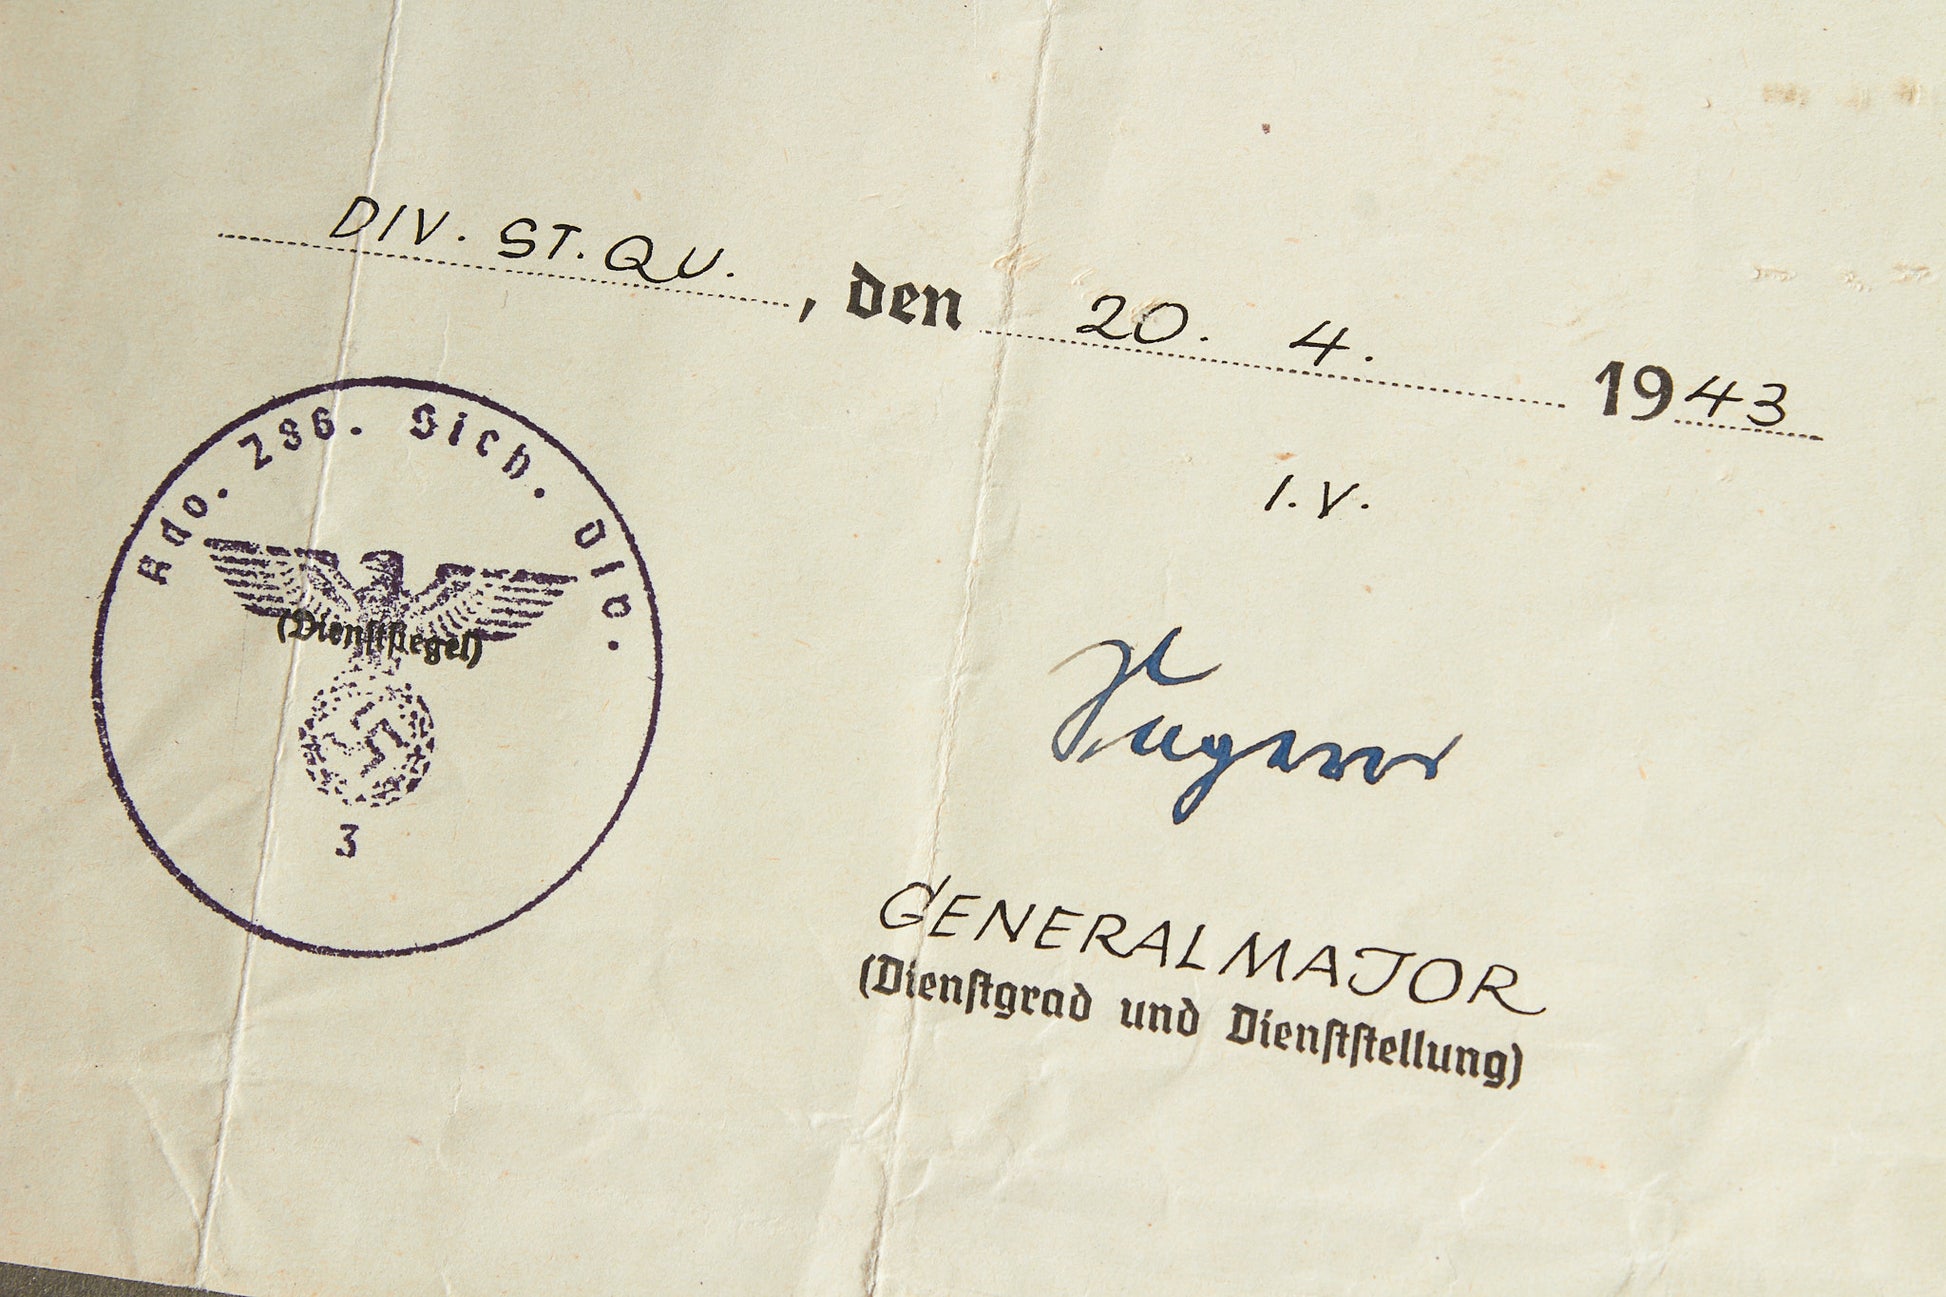 DIV. ST. QU. , den 20. 4. 1943
Kdo. 286. Sich. Div.
(Dienstsiegel)
3
I. V.
GENERALMAJOR
(Dienstgrad und Dienststellung)